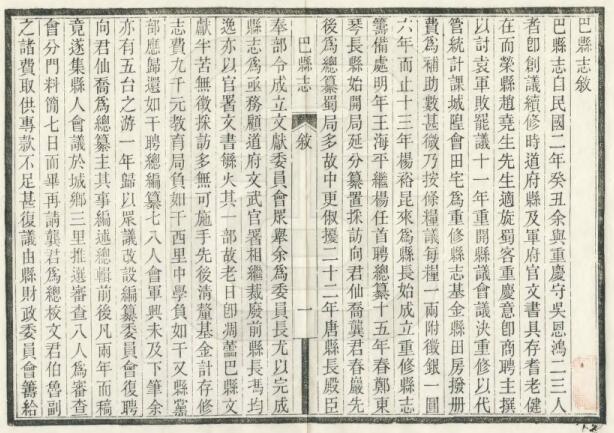 巴縣志敘
巴縣志自民國二年癸丑余與重慶守吳恩鴻二三人
者卽創議續修時道府縣及軍府官文書具存耆老健
在而榮縣趙堯生先生適旋蜀客重慶意卽商聘主撰
以討袁軍敗罷議十一年重開縣議會議決重修以代
管統計課城隍會田宅爲重修縣志基金縣田房撥册
費爲補助數甚微乃按條糧議每糧一兩附徵銀一圓
六年而止十三年楊裕昆來爲縣長始成立重修縣志
籌備處明年王海平繼楊任首聘總纂十五年春鄭東
琴長縣始開局延分纂置採訪向君仙喬龔君春巖先
後爲總纂蜀局多故中更俶擾二十二年唐縣長殿臣
巴縣志 敘 一
奉部令成立文獻委員會眾舉余爲委員長尤以完成
縣志爲亟務顧道府文武官署相繼裁廢前縣長馮均
逸亦以官署文書火其一部故老日卽凋巴縣文
獻半苦無徵採訪多無可施手先後清釐基金計存修
志費九千元教育局負如干西里中學負如干又縣黨
部應歸還如干聘總編纂七八人會軍興未及下筆余
亦有五台之游一年歸以眾議改設編纂委員會復聘
向君仙喬爲總纂主其事編述總輯前後凡兩年而稿
竟遂集縣人會議於城鄉三里推選審查八人爲審查
會分門料簡七日而畢再請龔君爲總校文君伯魯副
之諸費取供專款不足甚復議由縣財政委員會籌給